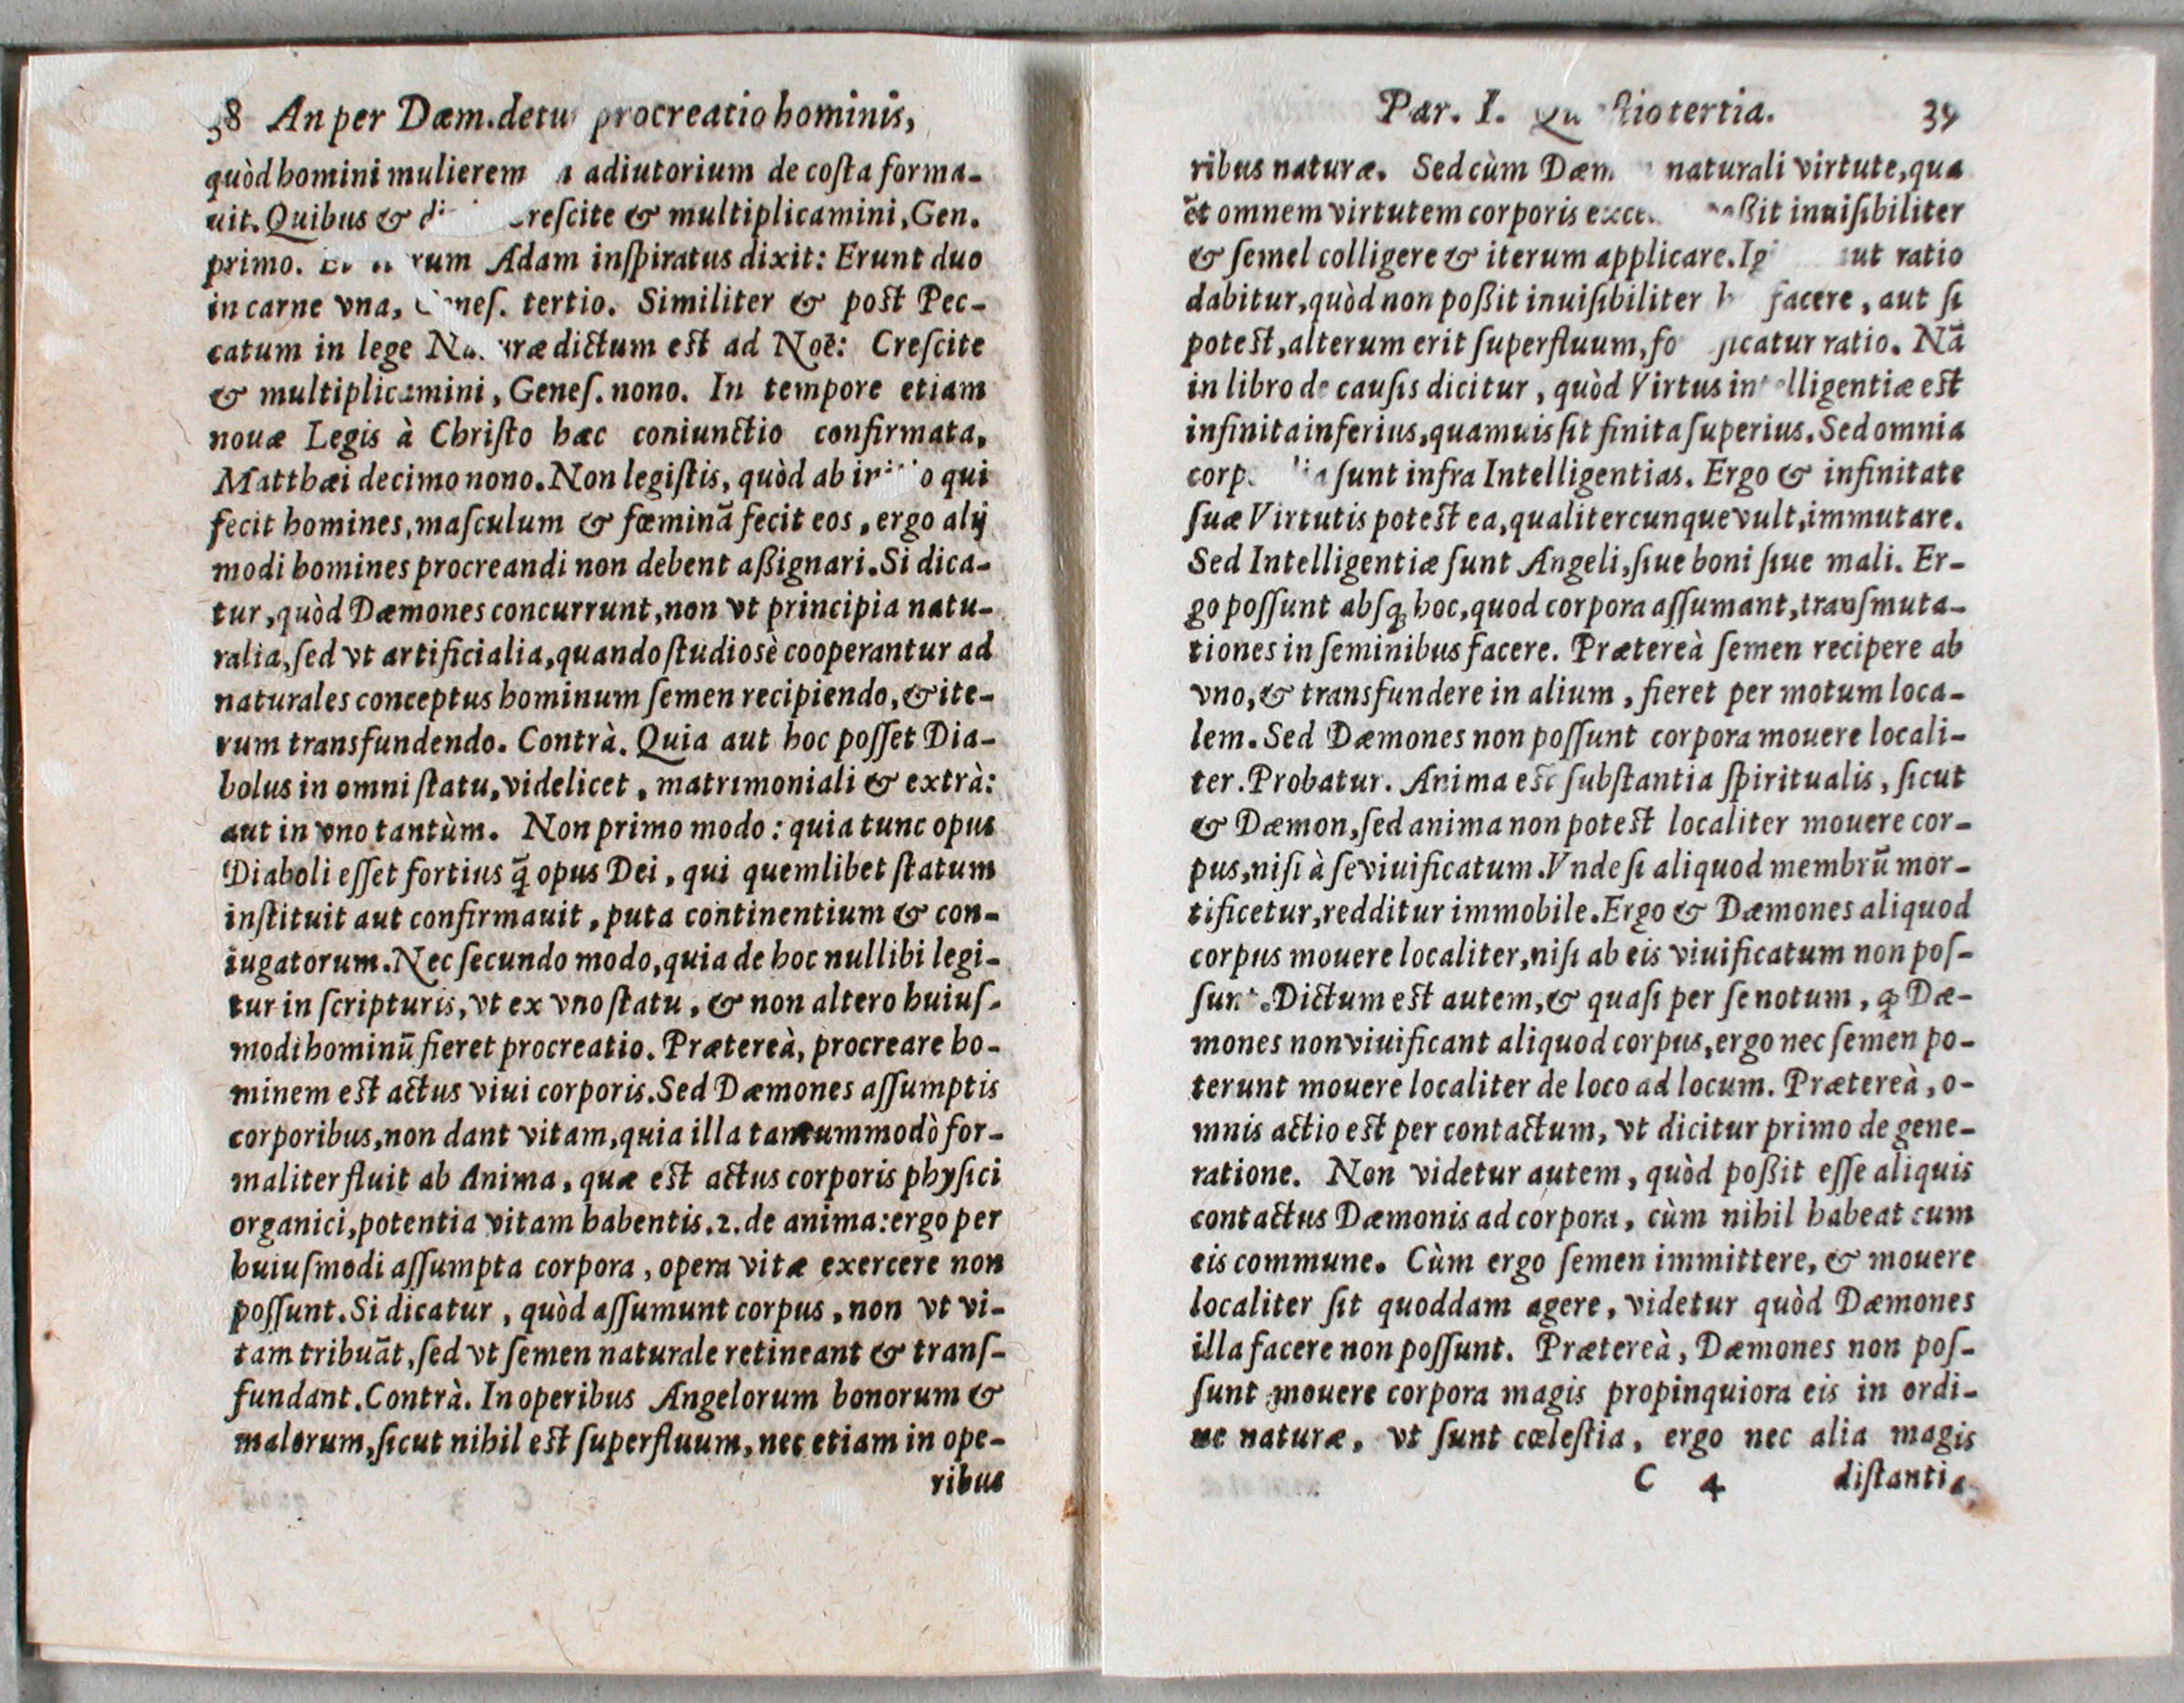 38 An per Dæm. detu procreatio hominis,
quòd homini mulierem adiutorium de coſta forma-
uit. Quibus & reſcite & multiplicamini, Gen.
primo. rum Adam inſpiratus dixit: Erunt duo
in carne vna, neſ. tertio. Similiter & poſt Pec-
catum in lege Na uræ dictum eſt ad Noē: Creſcite
& multiplicamini, Geneſ. nono. In tempore etiam
nouæ Legis à Chriſto hæc coniunctio confirmata,
Matthæi decimo nono. Non legiſtis, quòd ab in o qui
fecit homines, maſculum & fœminā fecit eos, ergo alij
modi homines procreandi non debent aßignari. Si dica-
tur, quòd Dæmones concurrunt, non vt principia natu-
ralia, ſed vt artificialia, quando ſtudiosè cooperantur ad
naturales conceptus hominum ſemen recipiendo, & ite-
rum transfundendo. Contrà. Quia aut hoc poſſet Dia-
bolus in omni ſtatu, videlicet, matrimoniali & extrà:
aut in vno tantùm. Non primo modo: quia tunc opus
Diaboli eſſet fortius q̃ opus Dei, qui quemlibet ſtatum
inſtituit aut confirmauit, puta continentium & con-
iugatorum. Nec ſecundo modo, quia de hoc nullibi legi-
tur in ſcripturis, vt ex vno ſtatu, & non altero huiuſ-
modi hominū fieret procreatio. Prætereà, procreare ho-
minem eſt actus viui corporis. Sed Dæmones aſſumptis
corporibus, non dant vitam, quia illa tantummodò for-
maliter fluit ab Anima, quæ eſt actus corporis phyſici
organici, potentia vitam habentis. 2. de anima: ergo per
huiuſmodi aſſumpta corpora, opera vitæ exercere non
poſſunt. Si dicatur, quòd aſſumunt corpus, non vt vi-
tam tribuāt, ſed vt ſemen naturale retineant & tranſ-
fundant. Contrà. In operibus Angelorum bonorum &
malorum, ſicut nihil eſt ſuperfluum, nec etiam in ope-
ribus
Par. I. Qu ſtio tertia. 39
ribus naturæ. Sed cùm Dæm naturali virtute, qua
ēt omnem virtutem corporis exce oßit inuiſibiliter
& ſemel colligere & iterum applicare. Igi aut ratio
dabitur, quòd non poßit inuiſibiliter h facere, aut ſi
poteſt, alterum erit ſuperfluum, ſo catur ratio. Nā
in libro de cauſis dicitur, quòd Virtus intelligentiæ eſt
infinita inferius, quamuis ſit finita ſuperius. Sed omnia
corp lia ſunt infra Intelligentias. Ergo & infinitate
ſuæ Virtutis poteſt ea, qualitercunque vult, immutare.
Sed Intelligentiæ ſunt Angeli, ſiue boni ſiue mali. Er-
go poſſunt abſq; hoc, quod corpora aſſumant, tranſmuta-
tiones in ſeminibus facere. Prætereà ſemen recipere ab
vno, & transfundere in alium, fieret per motum loca-
lem. Sed Dæmones non poſſunt corpora mouere locali-
ter. Probatur. Anima eſt ſubſtantia ſpiritualis, ſicut
& Dæmon, ſed anima non poteſt localiter mouere cor-
pus, niſi à ſe viuificatum. Vnde ſi aliquod membrū mor-
tificetur, redditur immobile. Ergo & Dæmones aliquod
corpus mouere localiter, niſi ab eis viuificatum non poſ-
ſunt. Dictum eſt autem, & quaſi per ſe notum, ꝙ Dæ-
mones non viuificant aliquod corpus, ergo nec ſemen po-
terunt mouere localiter de loco ad locum. Prætereà, o-
mnis actio eſt per contactum, vt dicitur primo de gene-
ratione. Non videtur autem, quòd poßit eſſe aliquis
contactus Dæmonis ad corpora, cùm nihil habeat cum
eis commune. Cùm ergo ſemen immittere, & mouere
localiter ſit quoddam agere, videtur quòd Dæmones
illa facere non poſſunt. Prætereà, Dæmones non poſ-
ſunt mouere corpora magis propinquiora eis in ordi-
ne naturæ, vt ſunt cœleſtia, ergo nec alia magis
C 4 diſtantia,